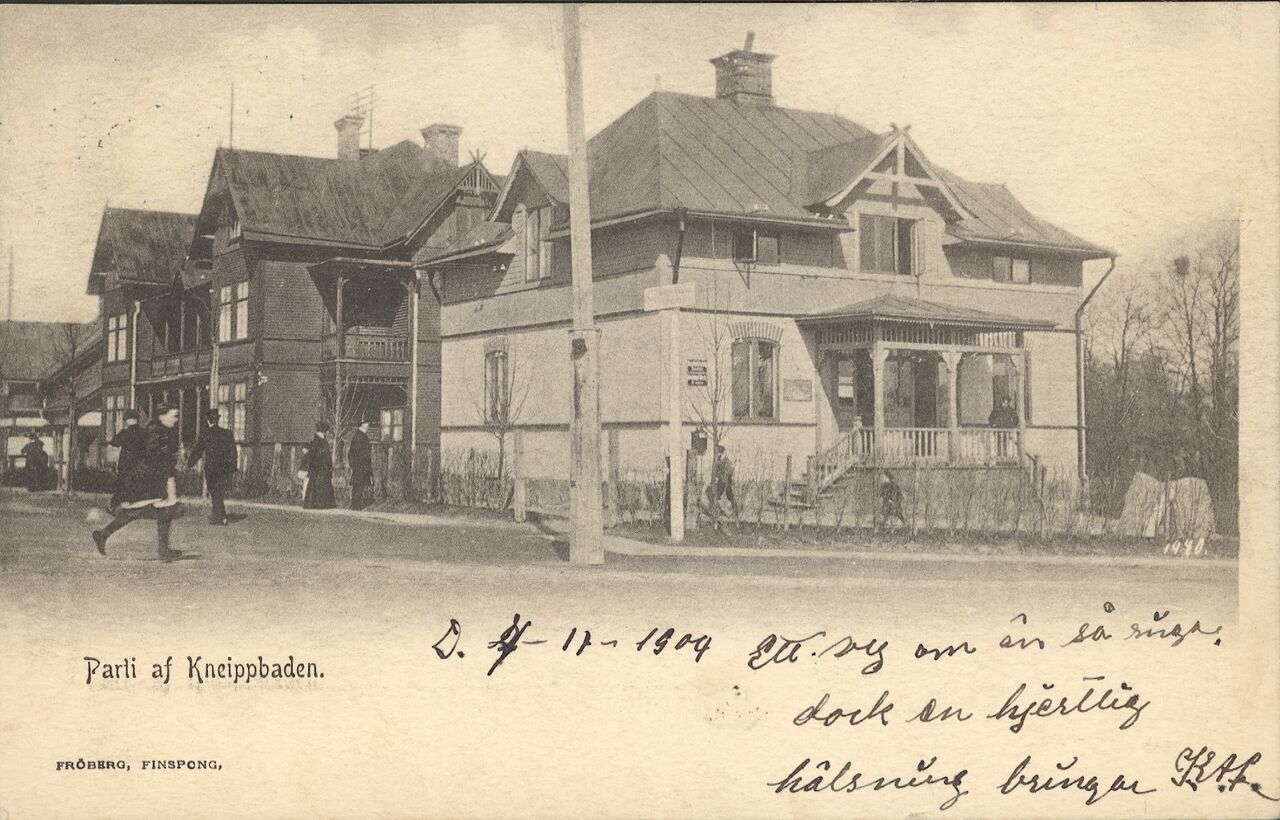 1940.
Parti af Kneippbaden.
FRÖBERG, FINSPONG,
D. 4/ - 11 - 1904 Ett. vy om än så ringa.
dock en hjertlig
hälsning bringar K.A.L.